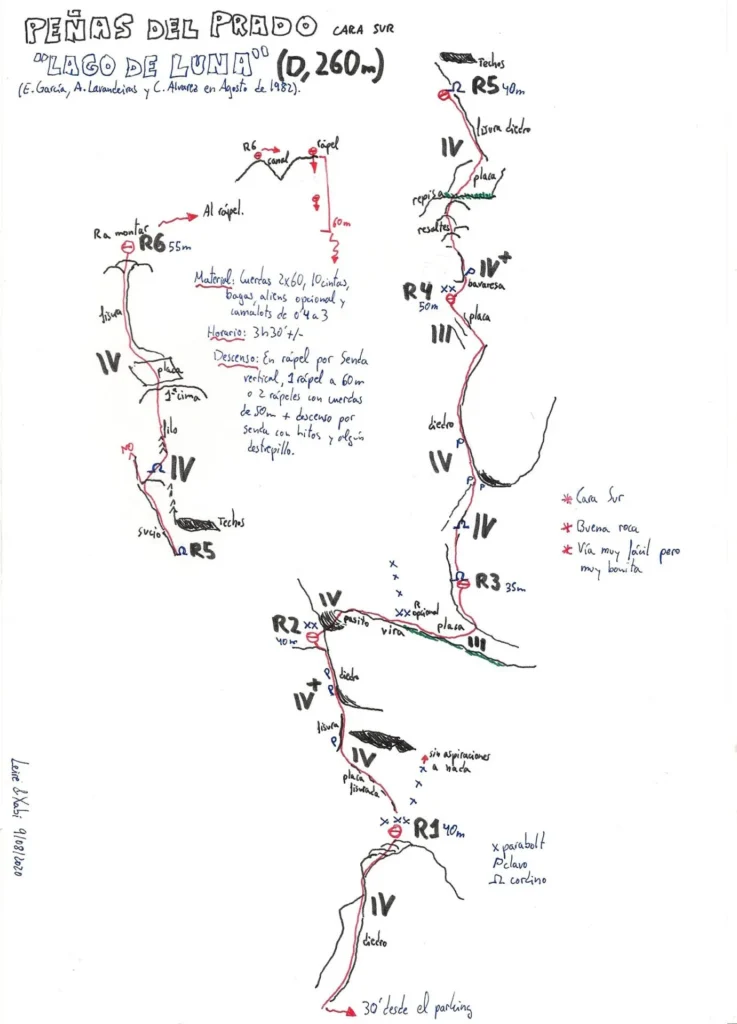 PEÑAS DEL PRADO CARA SUR
"LAGO DE LUNA" (D, 260m)
(E. García, A. Lavandeiras y C. Alvarez en Agosto de 1982).
Techos
R5 40m
fisura diedro
IV
placa
repisa
resaltes
IV+
bavaresa
R4
50m
placa
III
diedro
IV
IV
R3 35m
placa
III
R6
canal
rápel
60m
Al rápel.
R a montar
R6 55m
fisura
IV
placa
1ª cima
filo
NO
IV
Techos
sucio
R5
Material: Cuerdas 2x60, 10 cintas,
bagas, aliens opcional y
camalots de 0'4 a 3
Horario: 3h30' +/-
Descenso: En rápel por Senda
vertical, 1 rápel a 60m
o 2 rápeles con cuerdas
de 50m + descenso por
senda con hitos y algún
destrepillo.
* Cara Sur
* Buena roca
* Vía muy fácil pero
muy bonita
IV
R2
40m
pasito
R opcional
vira
diedro
IV+
fisura
IV
placa
fisurada
sin aspiraciones
a nada
R1 40m
x parabolt
P clavo
Ω cordino
IV
diedro
30' desde el parking
Leire & Xabi 9/08/2020